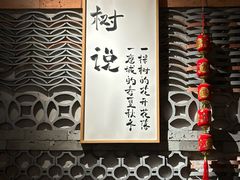 树说
一棵树的花开花落
一座城的春夏秋冬